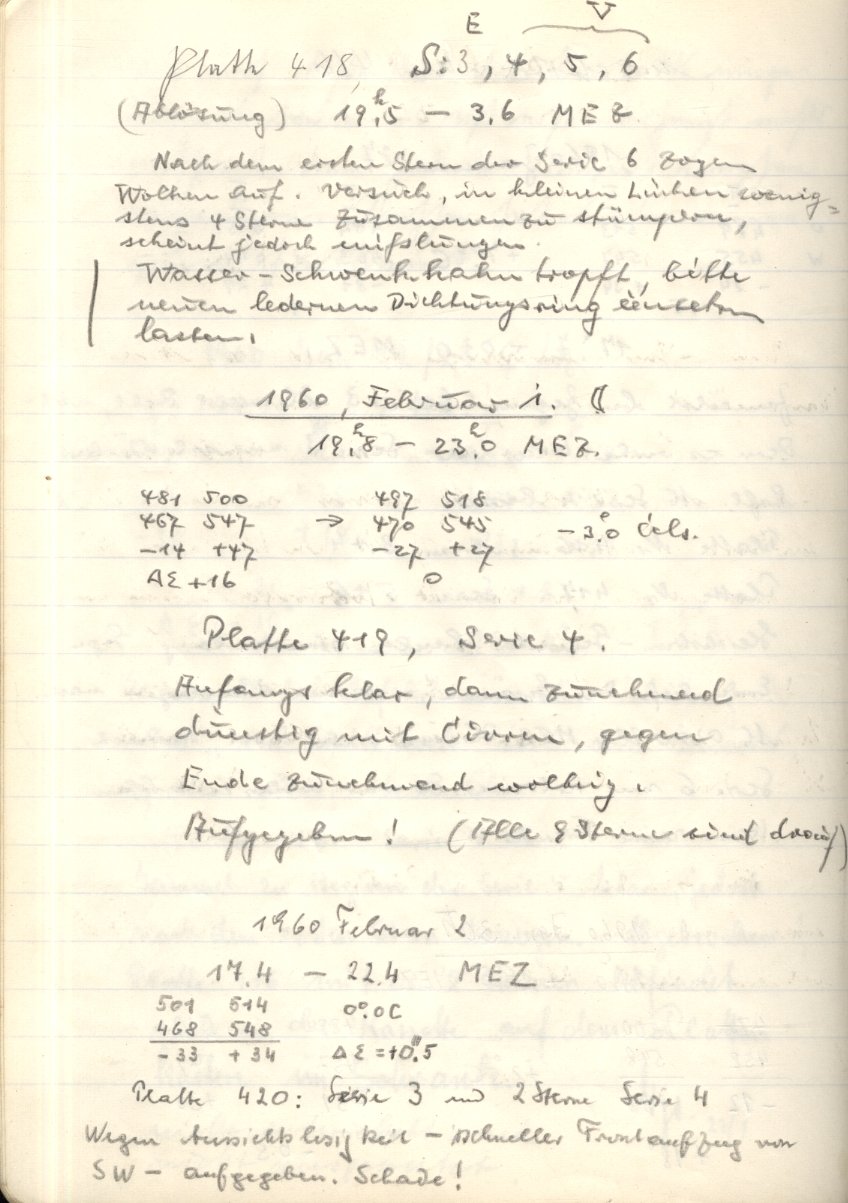 E V
Platte 418, S: 3, 4, 5, 6
(Ablösung) 19,ʰ5 – 3,6 MEZ.
Nach dem ersten Stern der Serie 6 zogen
Wolken auf. Versuch, in kleinen Lücken wenig=
stens 4 Sterne zusammenzustümpern,
scheint jedoch mißlungen.
Wasser-Schwenkhahn tropft, bitte
neuen ledernen Dichtungsring einsetzen
lassen.
1960, Februar 1. ☾
19,ʰ8 – 23,ʰ0 MEZ.
481 500 497 518
467 547 → 470 545 –3,°0 Cels.
–14 +47 –27 +27
ΔΣ +16 0
Platte 419, Serie 4.
Anfangs klar, dann zunehmend
dunstig mit Cirren, gegen
Ende zunehmend wolkig.
Aufgegeben! (Alle 9 Sterne sind drauf)
1960 Februar 2
17.4 – 22.4 MEZ
501 514 0°.0C
468 548
-33 +34 ΔΣ = +0.5
Platte 420: Serie 3 und 2 Sterne Serie 4
Wegen Aussichtslosigkeit – schneller Frontaufzug von
SW – aufgegeben. Schade!